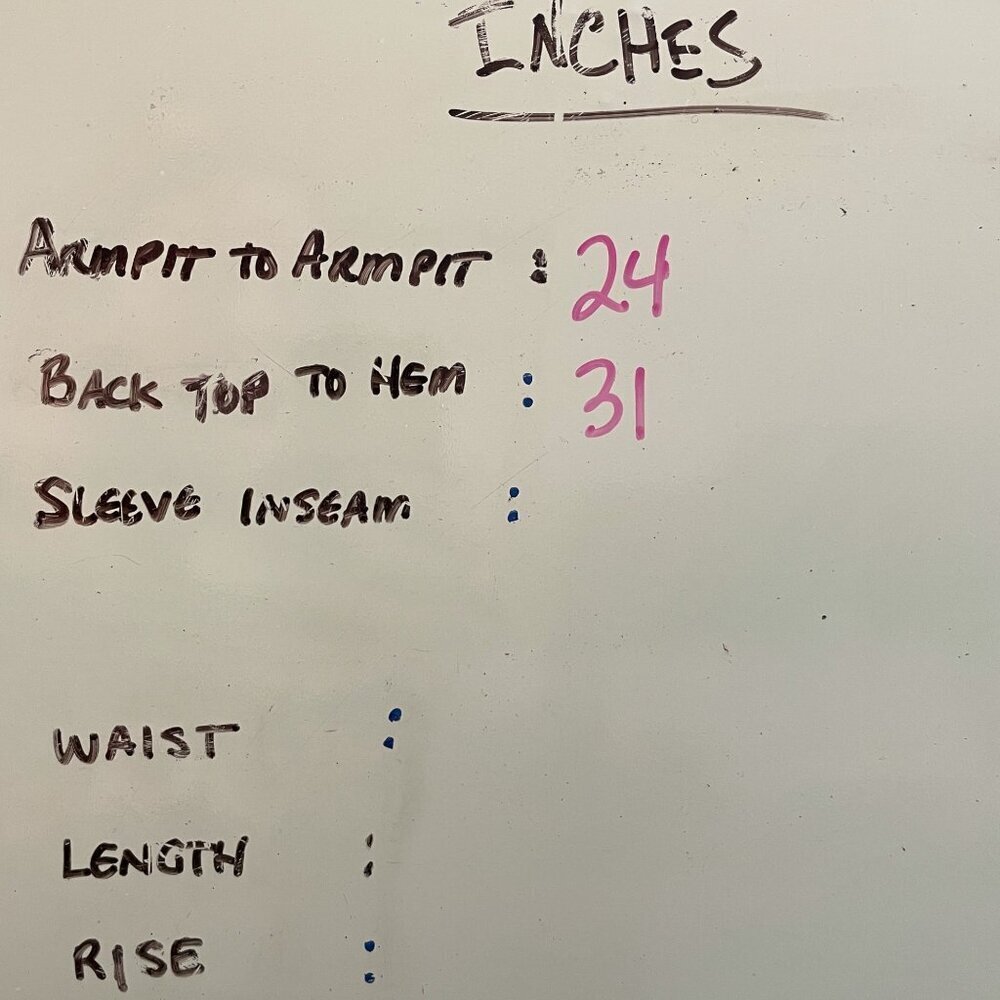 INCHES
ARMPIT TO ARMPIT : 24
BACK TOP TO HEM : 31
SLEEVE INSEAM :
WAIST :
LENGTH :
RISE :